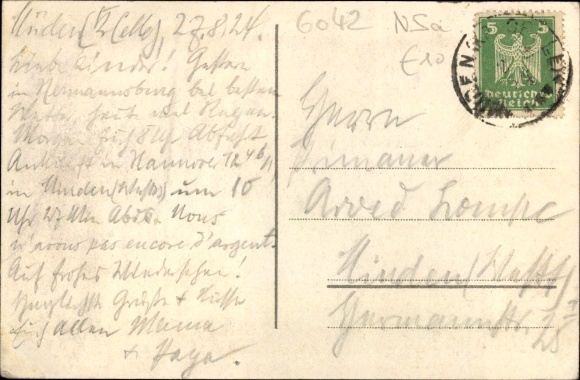 Müden (Celle), 27.8.24.
Liebe Kinder! Gestern
in Hermannsburg bei bestem
Wetter, heute viel Regen.
Morgen früh 8 Uhr Abfahrt
Ankunft in Hannover 12 46,
in Minden (Westf) um 10
Uhr 27 Min Abds. Nous
n'avons pas encore d'argent.
Auf frohes Wiedersehen!
Herzlichste Grüße + Küsse
Euch Allen Mama
+ Papa.
6042 NSa
£10
5 5
Deutsches
Reich
Herrn
Primaner
Arved Lampe
Minden (Westf)
Hermannstr.